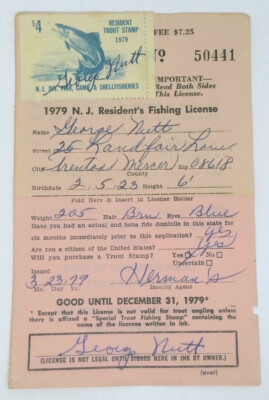 $4
RESIDENT
TROUT STAMP
1979
George Nutt
N. J. DIV. FISH, GAME & SHELLFISHERIES
FEE $7.25
No. 50441
IMPORTANT—
Read Both Sides
This License.
1979 N. J. Resident's Fishing License
Name George Nutt
Street 25 Landfair Lane
Trenton Mercer Zip 08618
County
Birthdate 2. 5. 23 Height 6'
Fold Here and Insert in License Holder
Weight 205 Hair Brn Eyes Blue
Have you had an actual and bona fide domicile in this state for
six months immediately prior to this application? yes
Are you a citizen of the United States? yes
Will you purchase a Trout Stamp? Yes No
Uncertain
Issued 3. 23. 79 Herman's
Mo. Day Yr. Issuing Agent
GOOD UNTIL DECEMBER 31, 1979*
* Except that this License is not valid for trout angling unless
there is affixed a "Special Trout Fishing Stamp" containing the
name of the licensee written in ink.
George Nutt
(LICENSE IS NOT LEGAL UNTIL SIGNED HERE IN INK BY OWNER.)
(over)